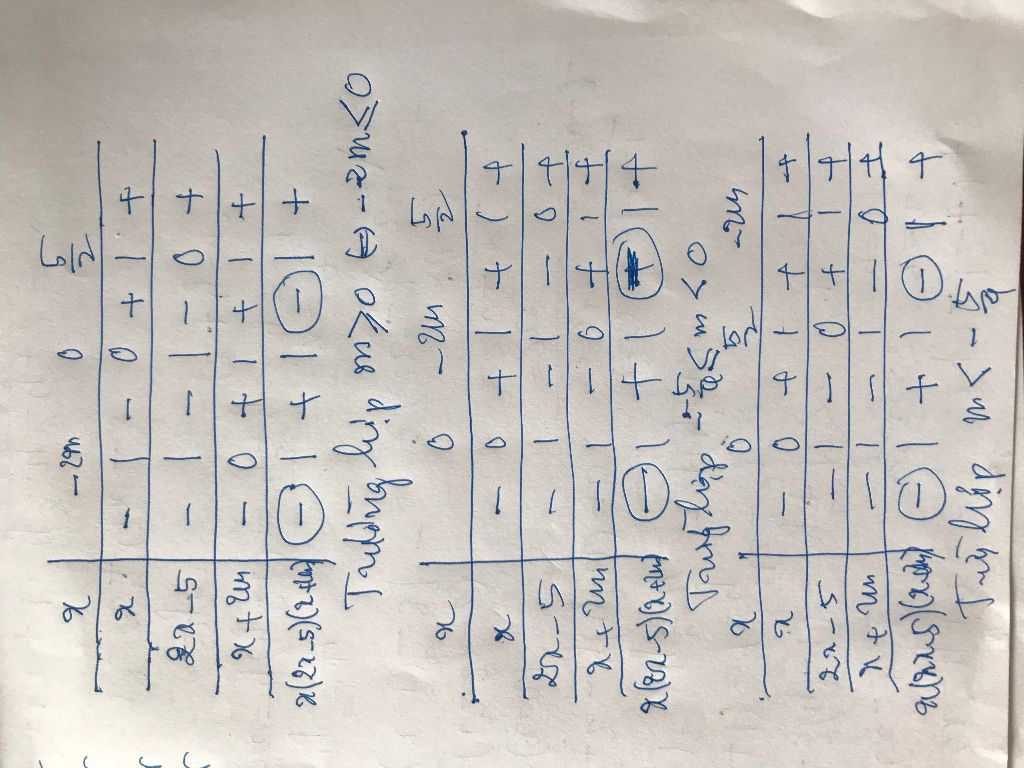 x -2m 0 5/2
x - | - 0 + | +
2x-5 - | - | - 0 +
x+2m - 0 + | + | +
x(2x-5)(x+2m) - | + | - | +
Trường hợp m ≥ 0 ⇔ -2m ≤ 0
x 0 -2m 5/2
x - 0 + | + | +
2x-5 - | - | - 0 +
x+2m - | - 0 + | +
x(2x-5)(x+2m) - | + | | +
Trường hợp -5/4 ≤ m < 0
x 0 5/2 -2m
x - 0 + | + | +
2x-5 - | - 0 + | +
x+2m - | - | - 0 +
x(2x-5)(x+2m) - | + | - | +
Trường hợp m < -5/4